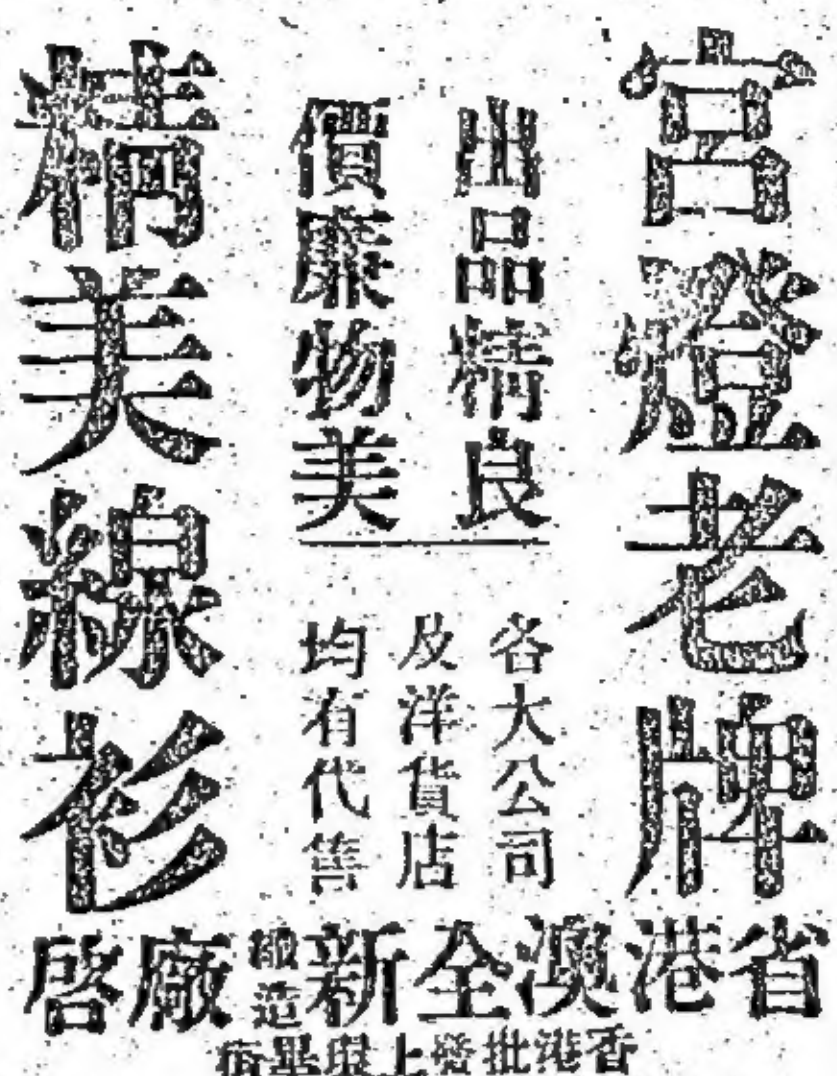 宮燈老牌
出品精良
價廉物美
各大公司
及洋貨店
均有代售
精美線衫
省港澳全新織造廠啓
香港批發上環